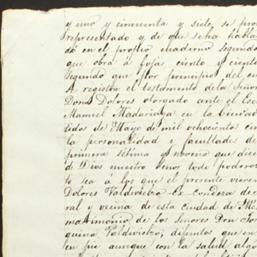 y uno y cincuenta y siete, se pre
representado y de que se ha habla
do en el propio cuaderno segundo
que obra a fojas ciento y ciento
segundo que por principio del cu
A registro el testamento de la Señor
Doña Dolores otorgado ante el Esc
Manuel Madariaga en la ciudad
tidos de Mayo de mil ochocientos cin
la personalidad y facultades de
primera sétima y novena que dice
de Dios nuestro Señor todo podero
te sea a los que el presente vieren
Dolores Valdivielso Ex condesa de
ral y vecina de esta ciudad de Mé
matrimonio de los Señores Don Jo
quina Valdivielso, difuntos que en
en pie aunque con la salud algo